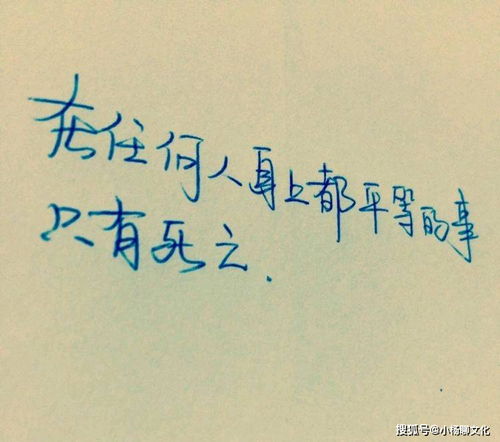 在任何人身上都平等的事
只有死亡.
搜狐号@小杨聊文化